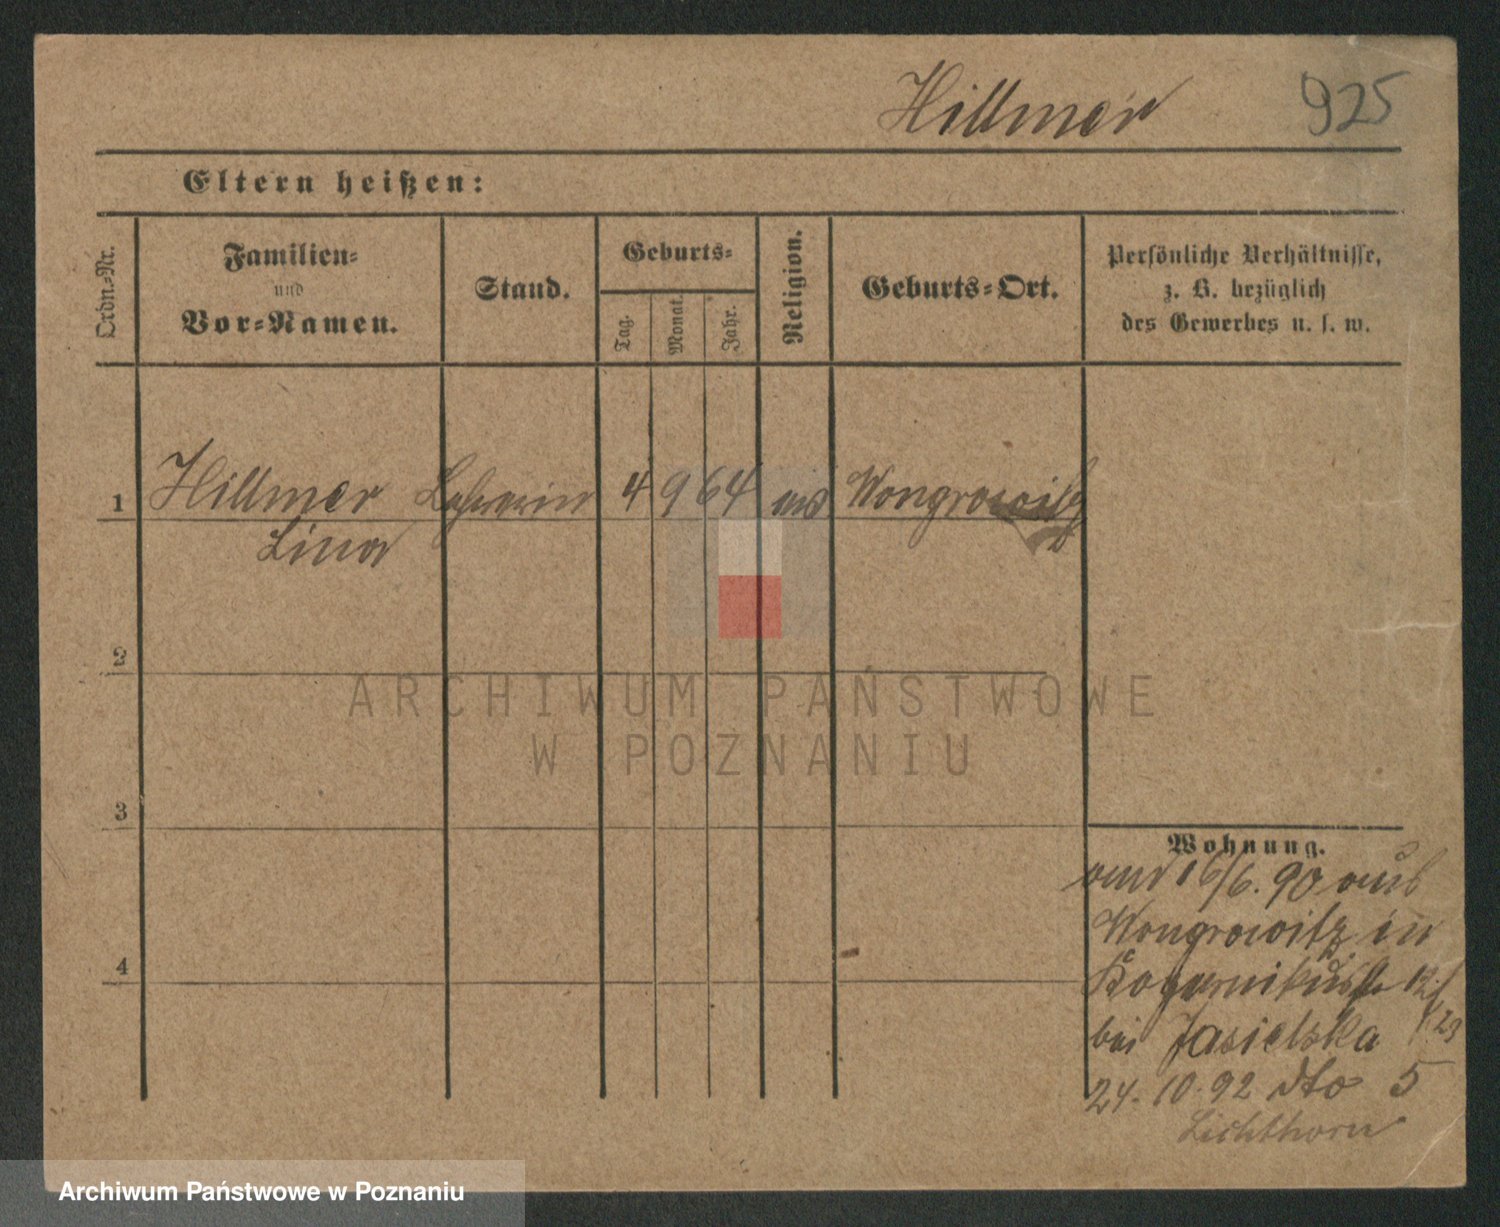 Hillmer 925
Eltern heißen:
Ordn.-Nr.
Familien-
und
Vor-Namen.
Stand.
Geburts-
Tag.
Monat.
Jahr.
Religion.
Geburts-Ort.
Persönliche Verhältnisse,
z. B. bezüglich
des Gewerbes u. s. w.
1 Hillmer Lehrerin 4 9 64 Wongrowitz
Lina
2
3
4
Wohnung.
16/6. 90 aus
Wongrowitz in
12/
bei Jasielska
24. 10. 92 dto 5
Lichthorn
ARCHIWUM PAŃSTWOWE
W POZNANIU
Archiwum Państwowe w Poznaniu